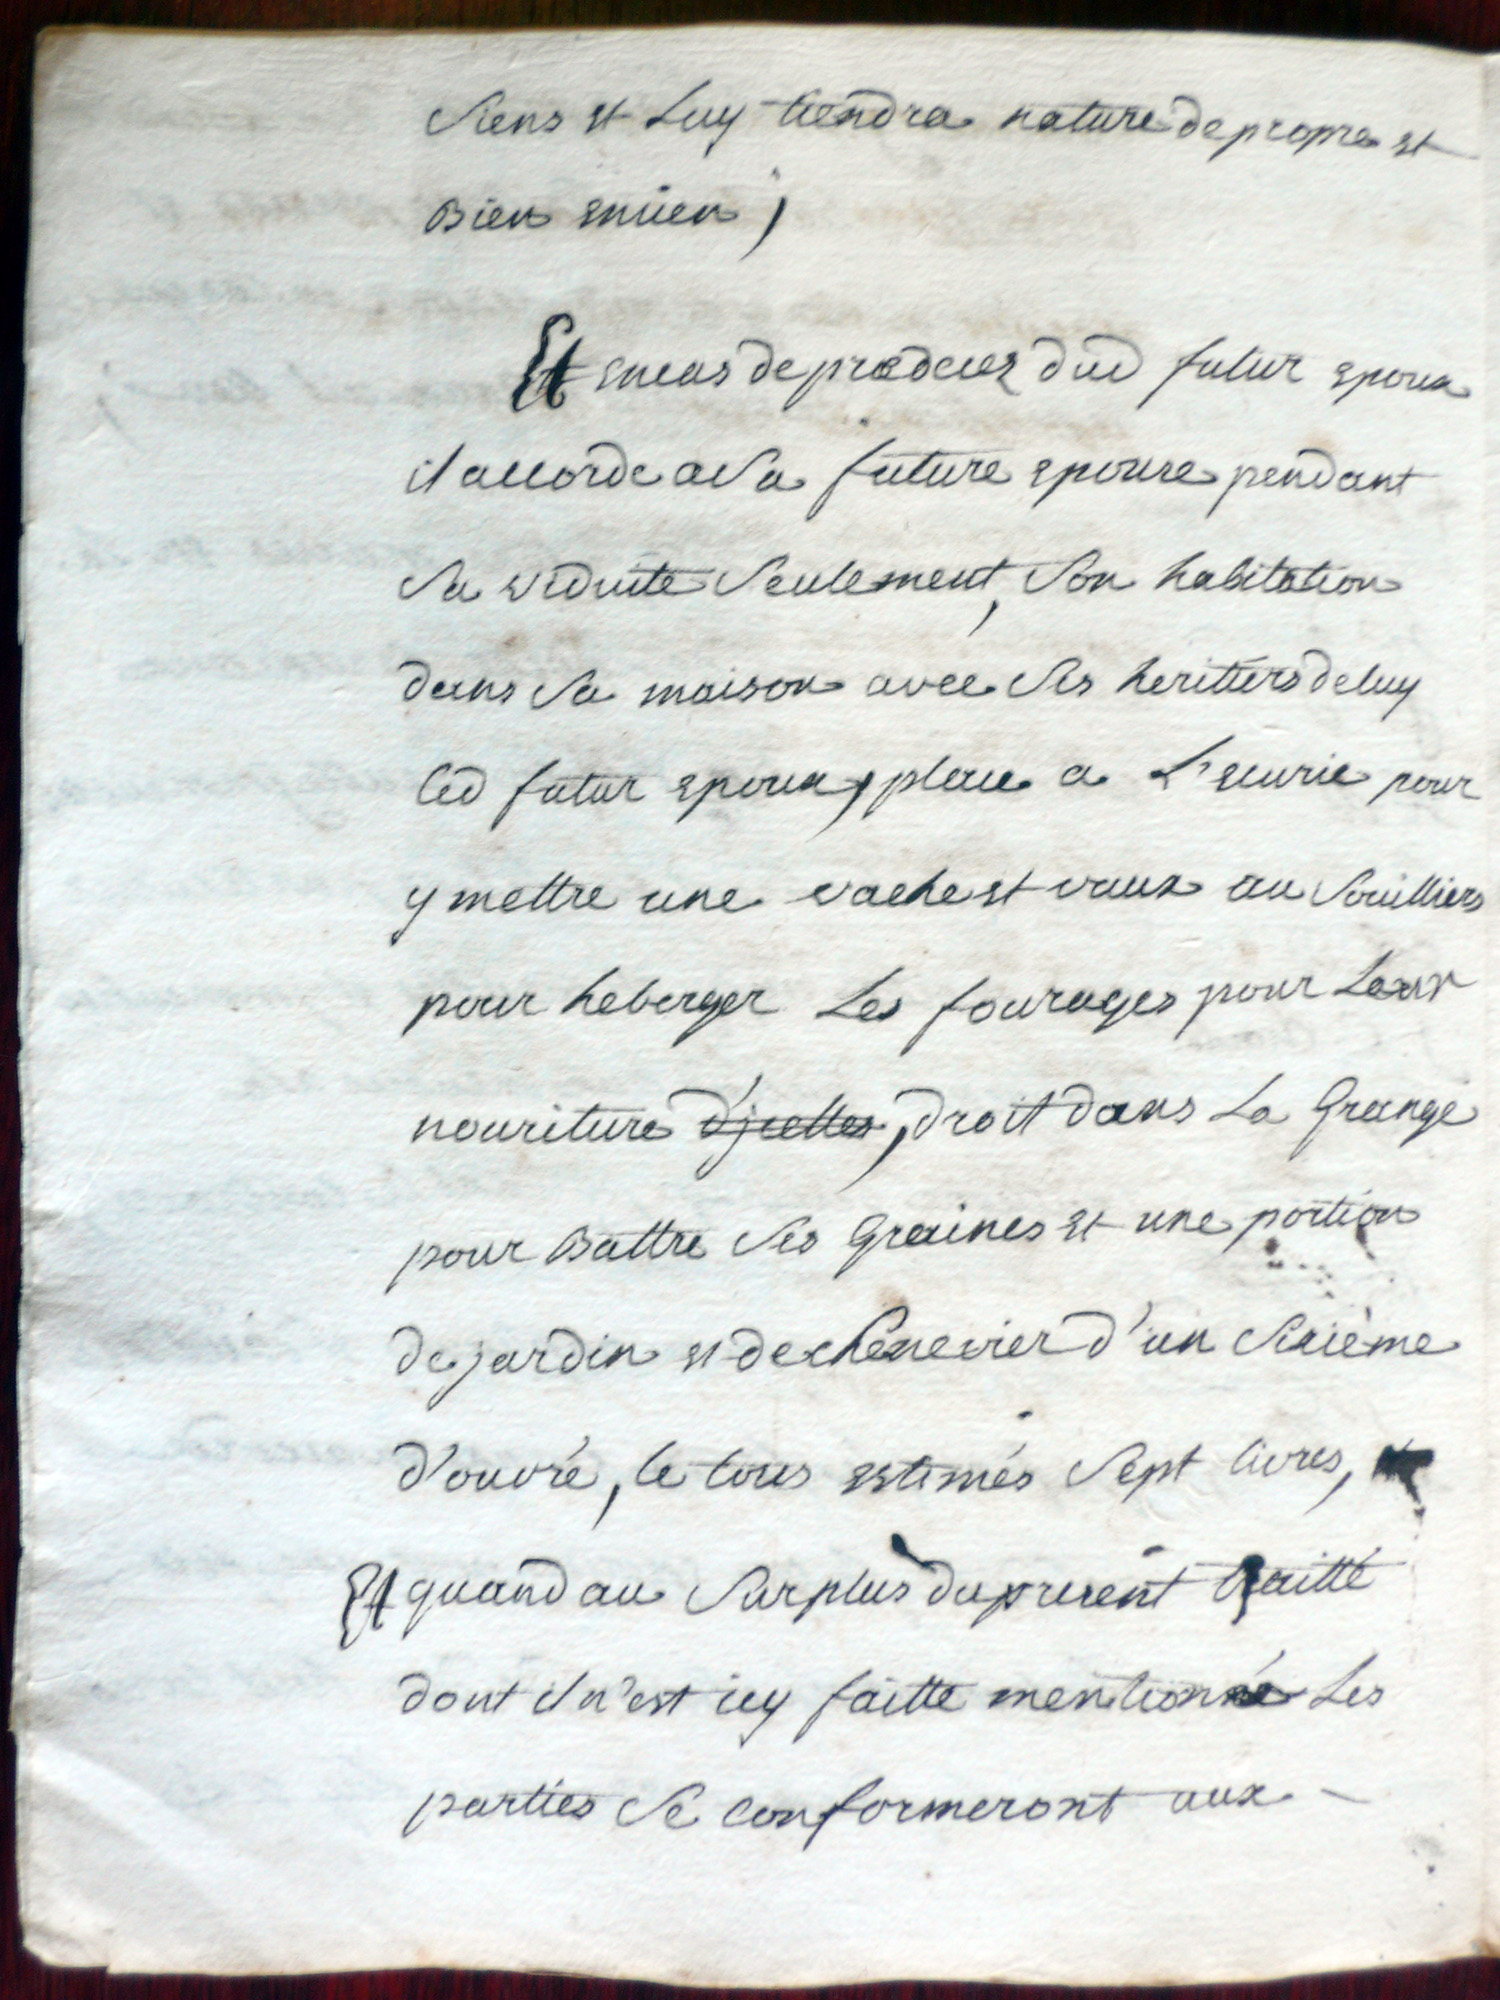 Siens et Luy tiendra nature de propre et
Bien encien ;
Et en cas de predecez dud futur epoux
il accorde a Sa future epouse pendant
Sa viduite Seulement, Son habitation
dans Sa maison avec Ses heritiers de luy
led futur epoux, place a L'ecurie pour
y mettre une vache et vaux au
pour heberger Les fourages pour Leur
nouriture d'jcelles, droit dans La Grange
pour Battre Ses Graines et une portion
de jardin et de chenevier d'un Sixième
d'ouvré, le tous estimés Sept livres,
Et quand au Surplus du present traitté
dont il n'est icy faitte mentionné Les
parties Se conformeront aux